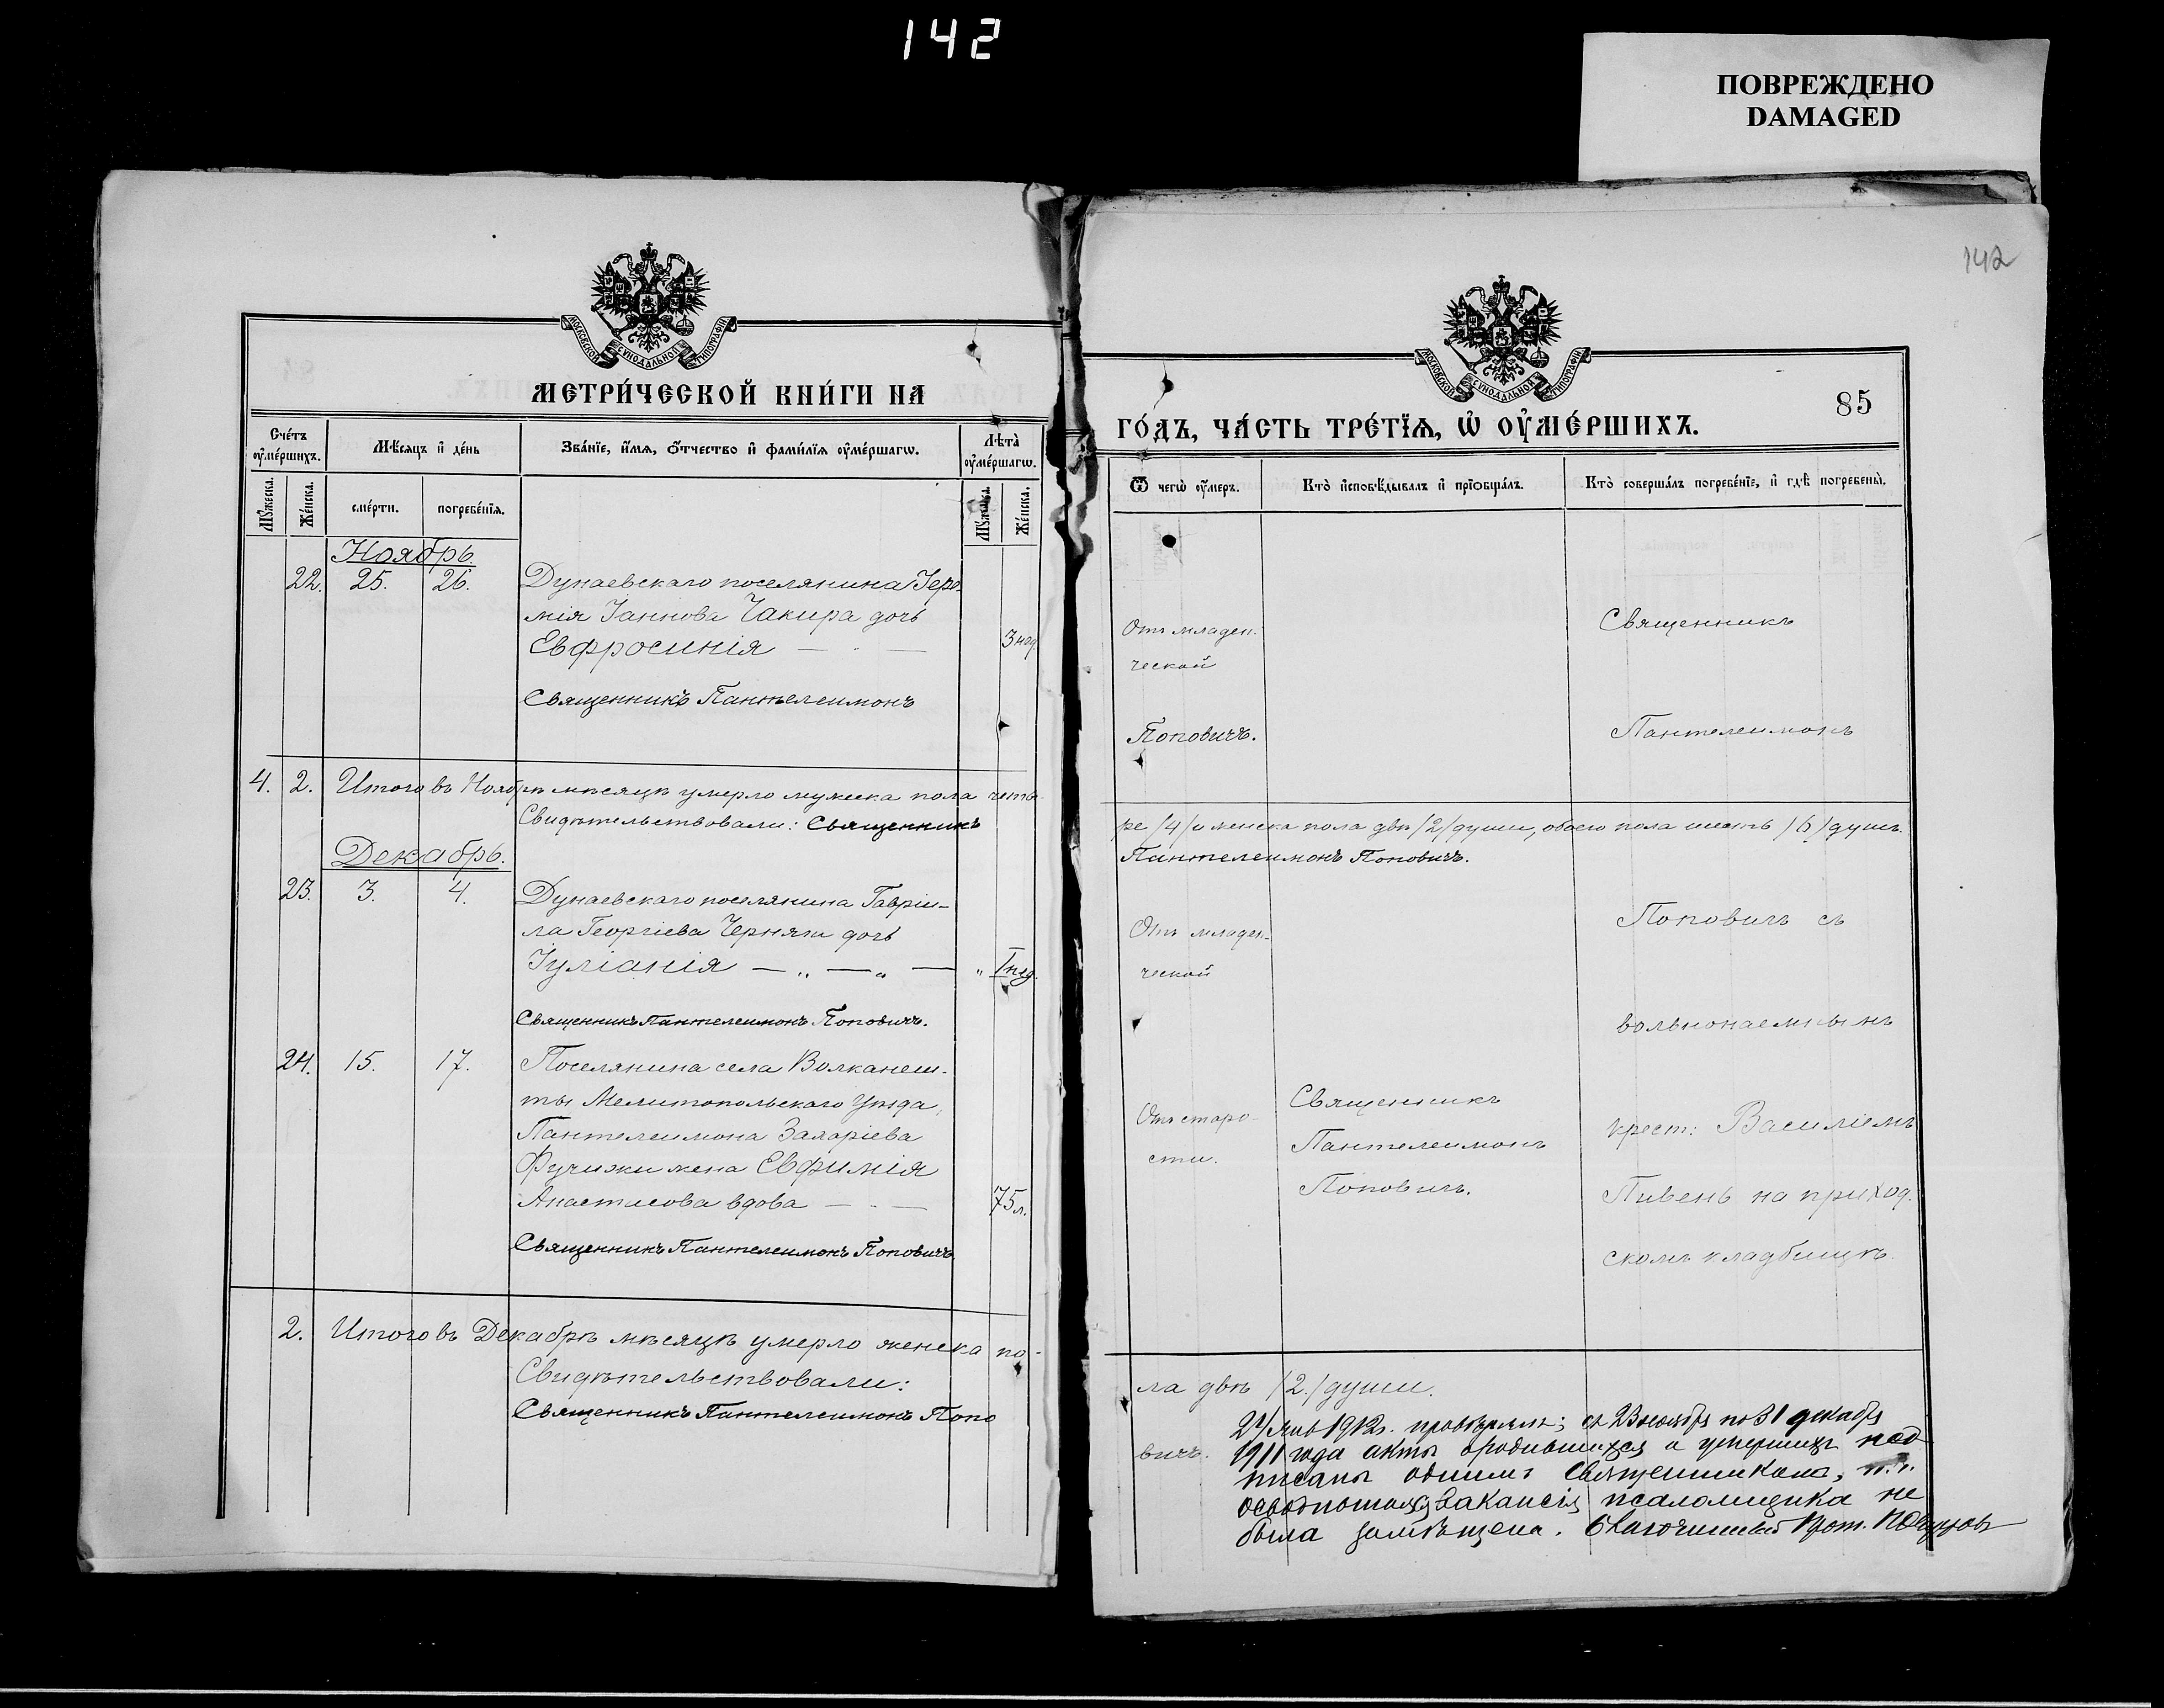 142
ПОВРЕЖДЕНО
DAMAGED
142
МОСКОВСКОЙ СУНОДАЛЬНОЙ ТИПОГРАФІИ
МЕТРИ́ЧЕСКОЙ КНИ́ГИ НА
Сче́тъ оу҆ме́ршихъ.
Мѣ́сяцъ и҆ де́нь
Зва́нїе, и҆́мѧ, ѻ҆́тчество и҆ фамі́лїѧ оу҆ме́ршагѡ.
Лѣ̀та оу҆ме́ршагѡ.
Мꙋ́жеска.
Же́нска.
сме́рти.
погребе́нїѧ.
Мꙋ́жеска.
Же́нска.
Ноябрь.
22. 25. 26. Дунаевскаго поселянина Іере-
мія Іаннова Чакира дочь
Евфросинія — 3 нед.
Священникъ Пантелеимонъ
4. 2. Итого въ Ноябрѣ мѣсяцѣ умерло мужеска пола четы-
Свидѣтельствовали: Священникъ
Декабрь.
23. 3. 4. Дунаевскаго поселянина Гавріи-
ла Георгіева Черняги дочь
Іуліанія — „ — „ — „ 1 нед.
Священникъ Пантелеимонъ Поповичъ.
24. 15. 17. Поселянина села Волканеш-
ты Мелитопольскаго Уѣзда,
Пантелеимона Захаріева
Фучижи жена Евфимія
Анастасова вдова — 75 л.
Священникъ Пантелеимонъ Поповичъ
2. Итого въ Декабрѣ мѣсяцѣ умерло женска по-
Свидѣтельствовали:
Священникъ Пантелеимонъ Попо
МОСКОВСКОЙ СУНОДАЛЬНОЙ ТИПОГРАФІИ
85
ГО́ДЪ, ЧА́СТЬ ТРЕ́ТЇѦ, Ѡ҆ ОУ҆МЕ́РШИХЪ.
Ѿ чегѡ̀ оу҆́меръ.
Кто̀ и҆сповѣ́дывалъ и҆ прїѡбща́лъ.
Кто̀ соверша́лъ погребе́нїе, и҆ гдѣ̀ погребены̀.
Отъ младен-
ческой
Священникъ
Поповичъ.
Пантелеимонъ
ре /4/ и женска пола двѣ /2/ души, обоего пола шесть /6/ душъ.
Пантелеимонъ Поповичъ.
Отъ младен-
ческой
Поповичъ съ
вольнонаемнымъ
Отъ старо-
сти.
Священникъ
Пантелеимонъ
Поповичъ.
крест: Василіемъ
Пивень на приход.
скомъ кладбищѣ.
ла двѣ /2./ души.
вичъ.
24 Янв 1912 г. провѣрялъ; съ 23 ноября по 31 декабря
1911 года акты о родившихся и умершихъ под-
писаны однимъ Священникомъ, т. к.
освободившаяся вакансія псаломщика не
была замѣщена. Благочинный Прот.